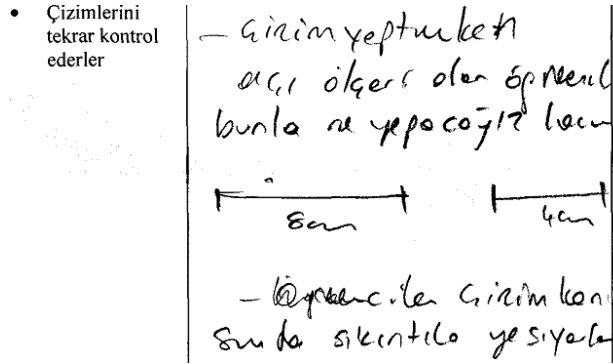 • Çizimlerini
tekrar kontrol
ederler
- Çizim yaptırırken
açı ölçeri olan öğrencil
bunla ne yapacağız hocam
8cm 4cm
- Öğrenciler çizim kon
sunda sıkıntıla yaşıyorla